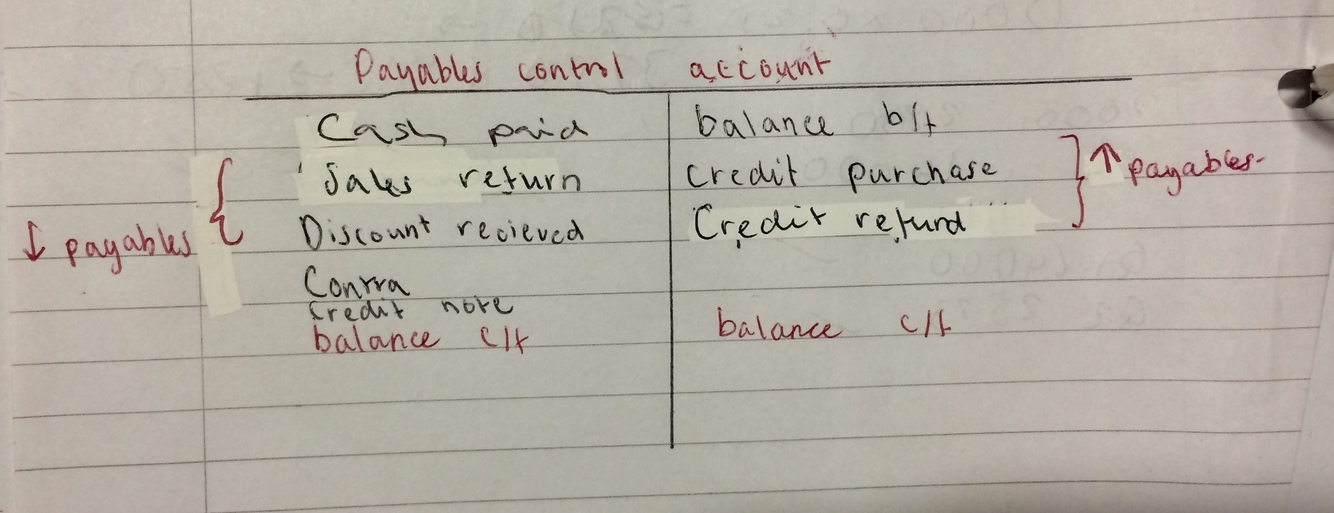 Payables control account
Cash paid
balance b/f
Sales return
credit purchase
↑ payables
Discount recieved
Credit refund
↓ payables
Contra
credit note
balance c/f
balance c/f